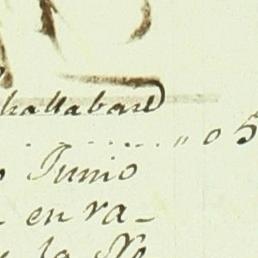 hallaban
........ „ 0 5
Junio
en ra-
la No